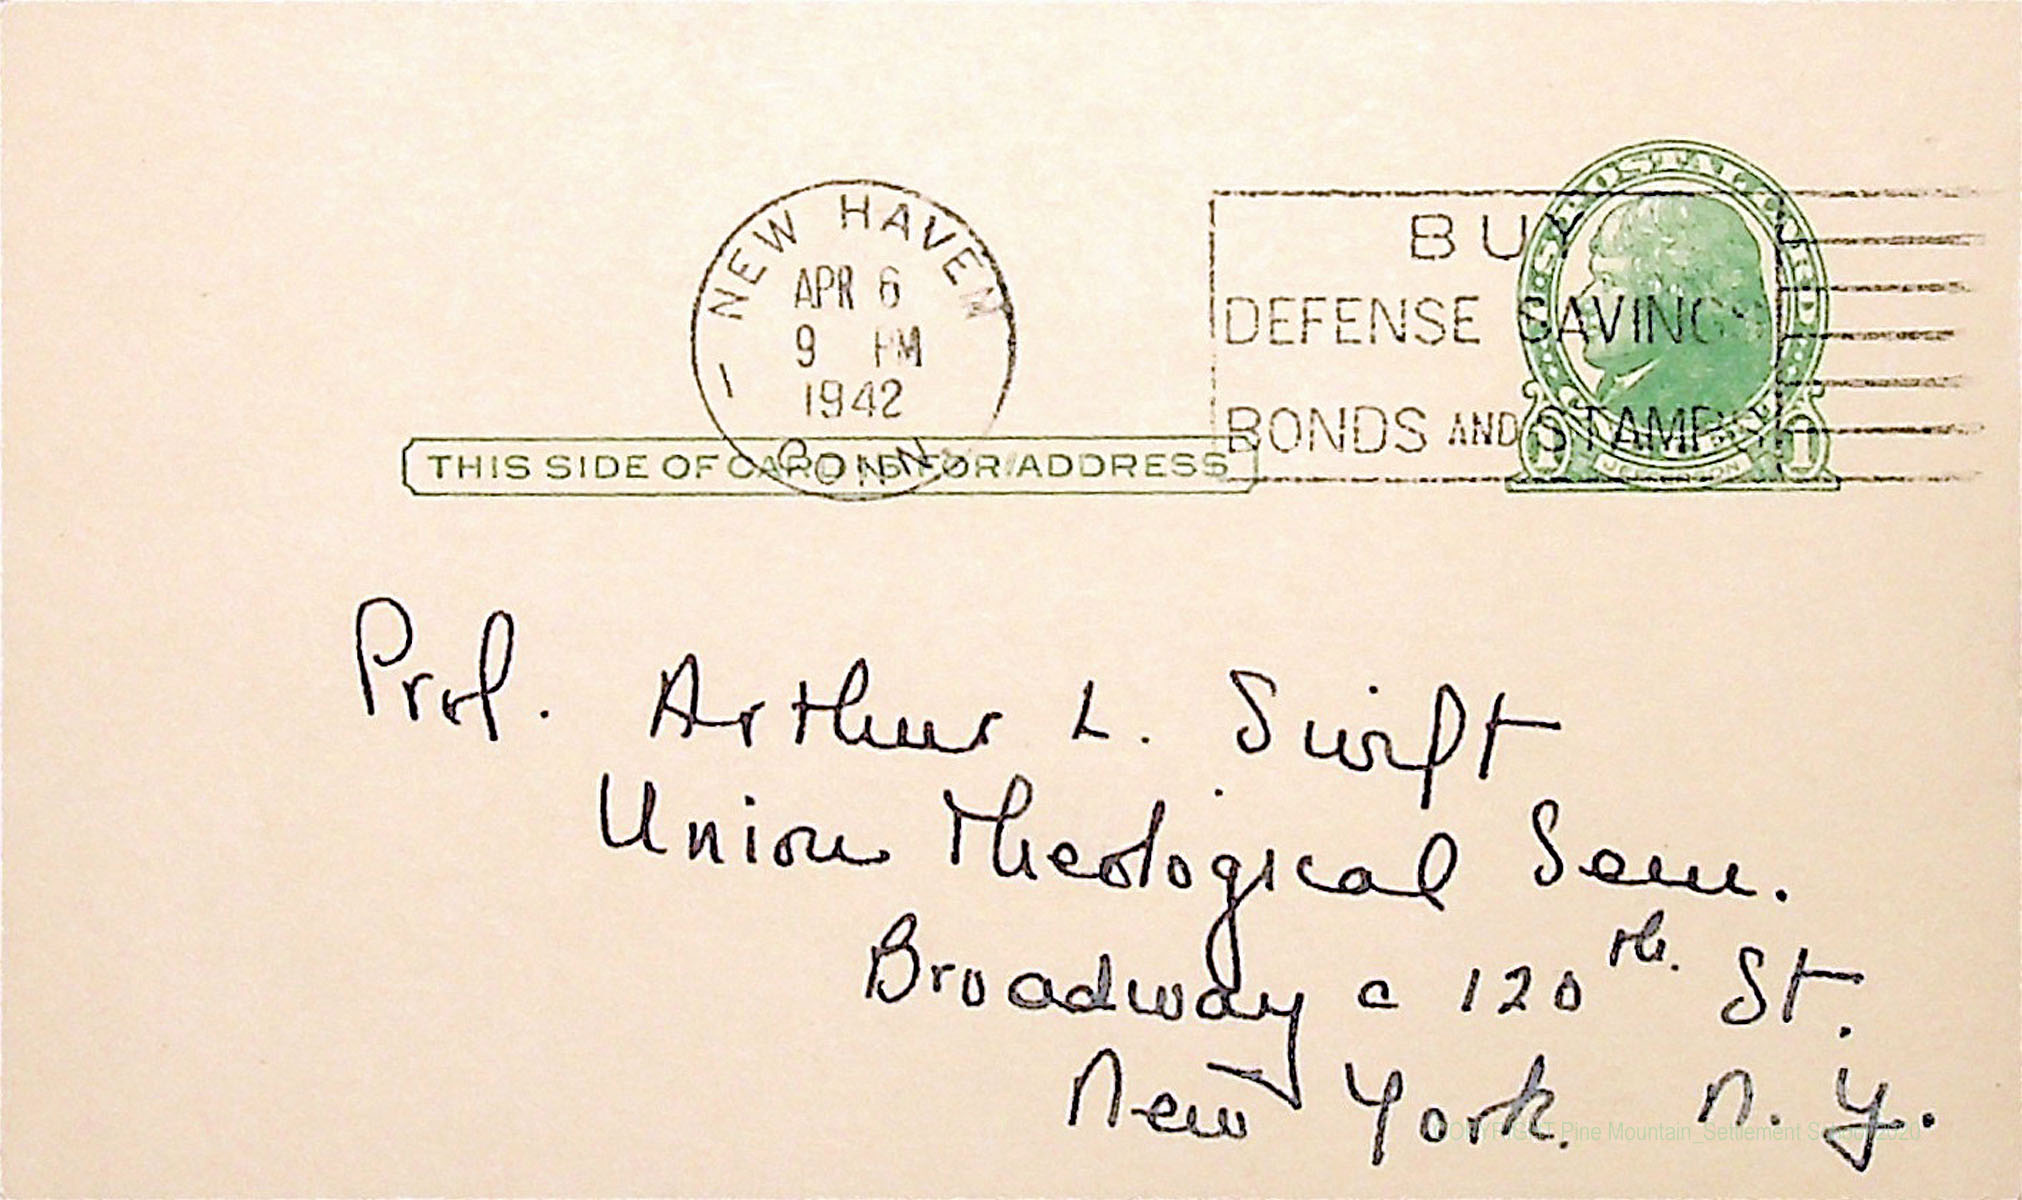 NEW HAVEN
APR 6
9 PM
1942
CONN.
BUY
DEFENSE SAVINGS
BONDS AND STAMPS
U.S. POSTAL CARD
JEFFERSON
1 1
THIS SIDE OF CARD IS FOR ADDRESS
Prof. Arthur L. Swift
Union Theological Sem.
Broadway a 120th. St.
New York. N. Y.
COPYRIGHT Pine Mountain_Settlement School 2020